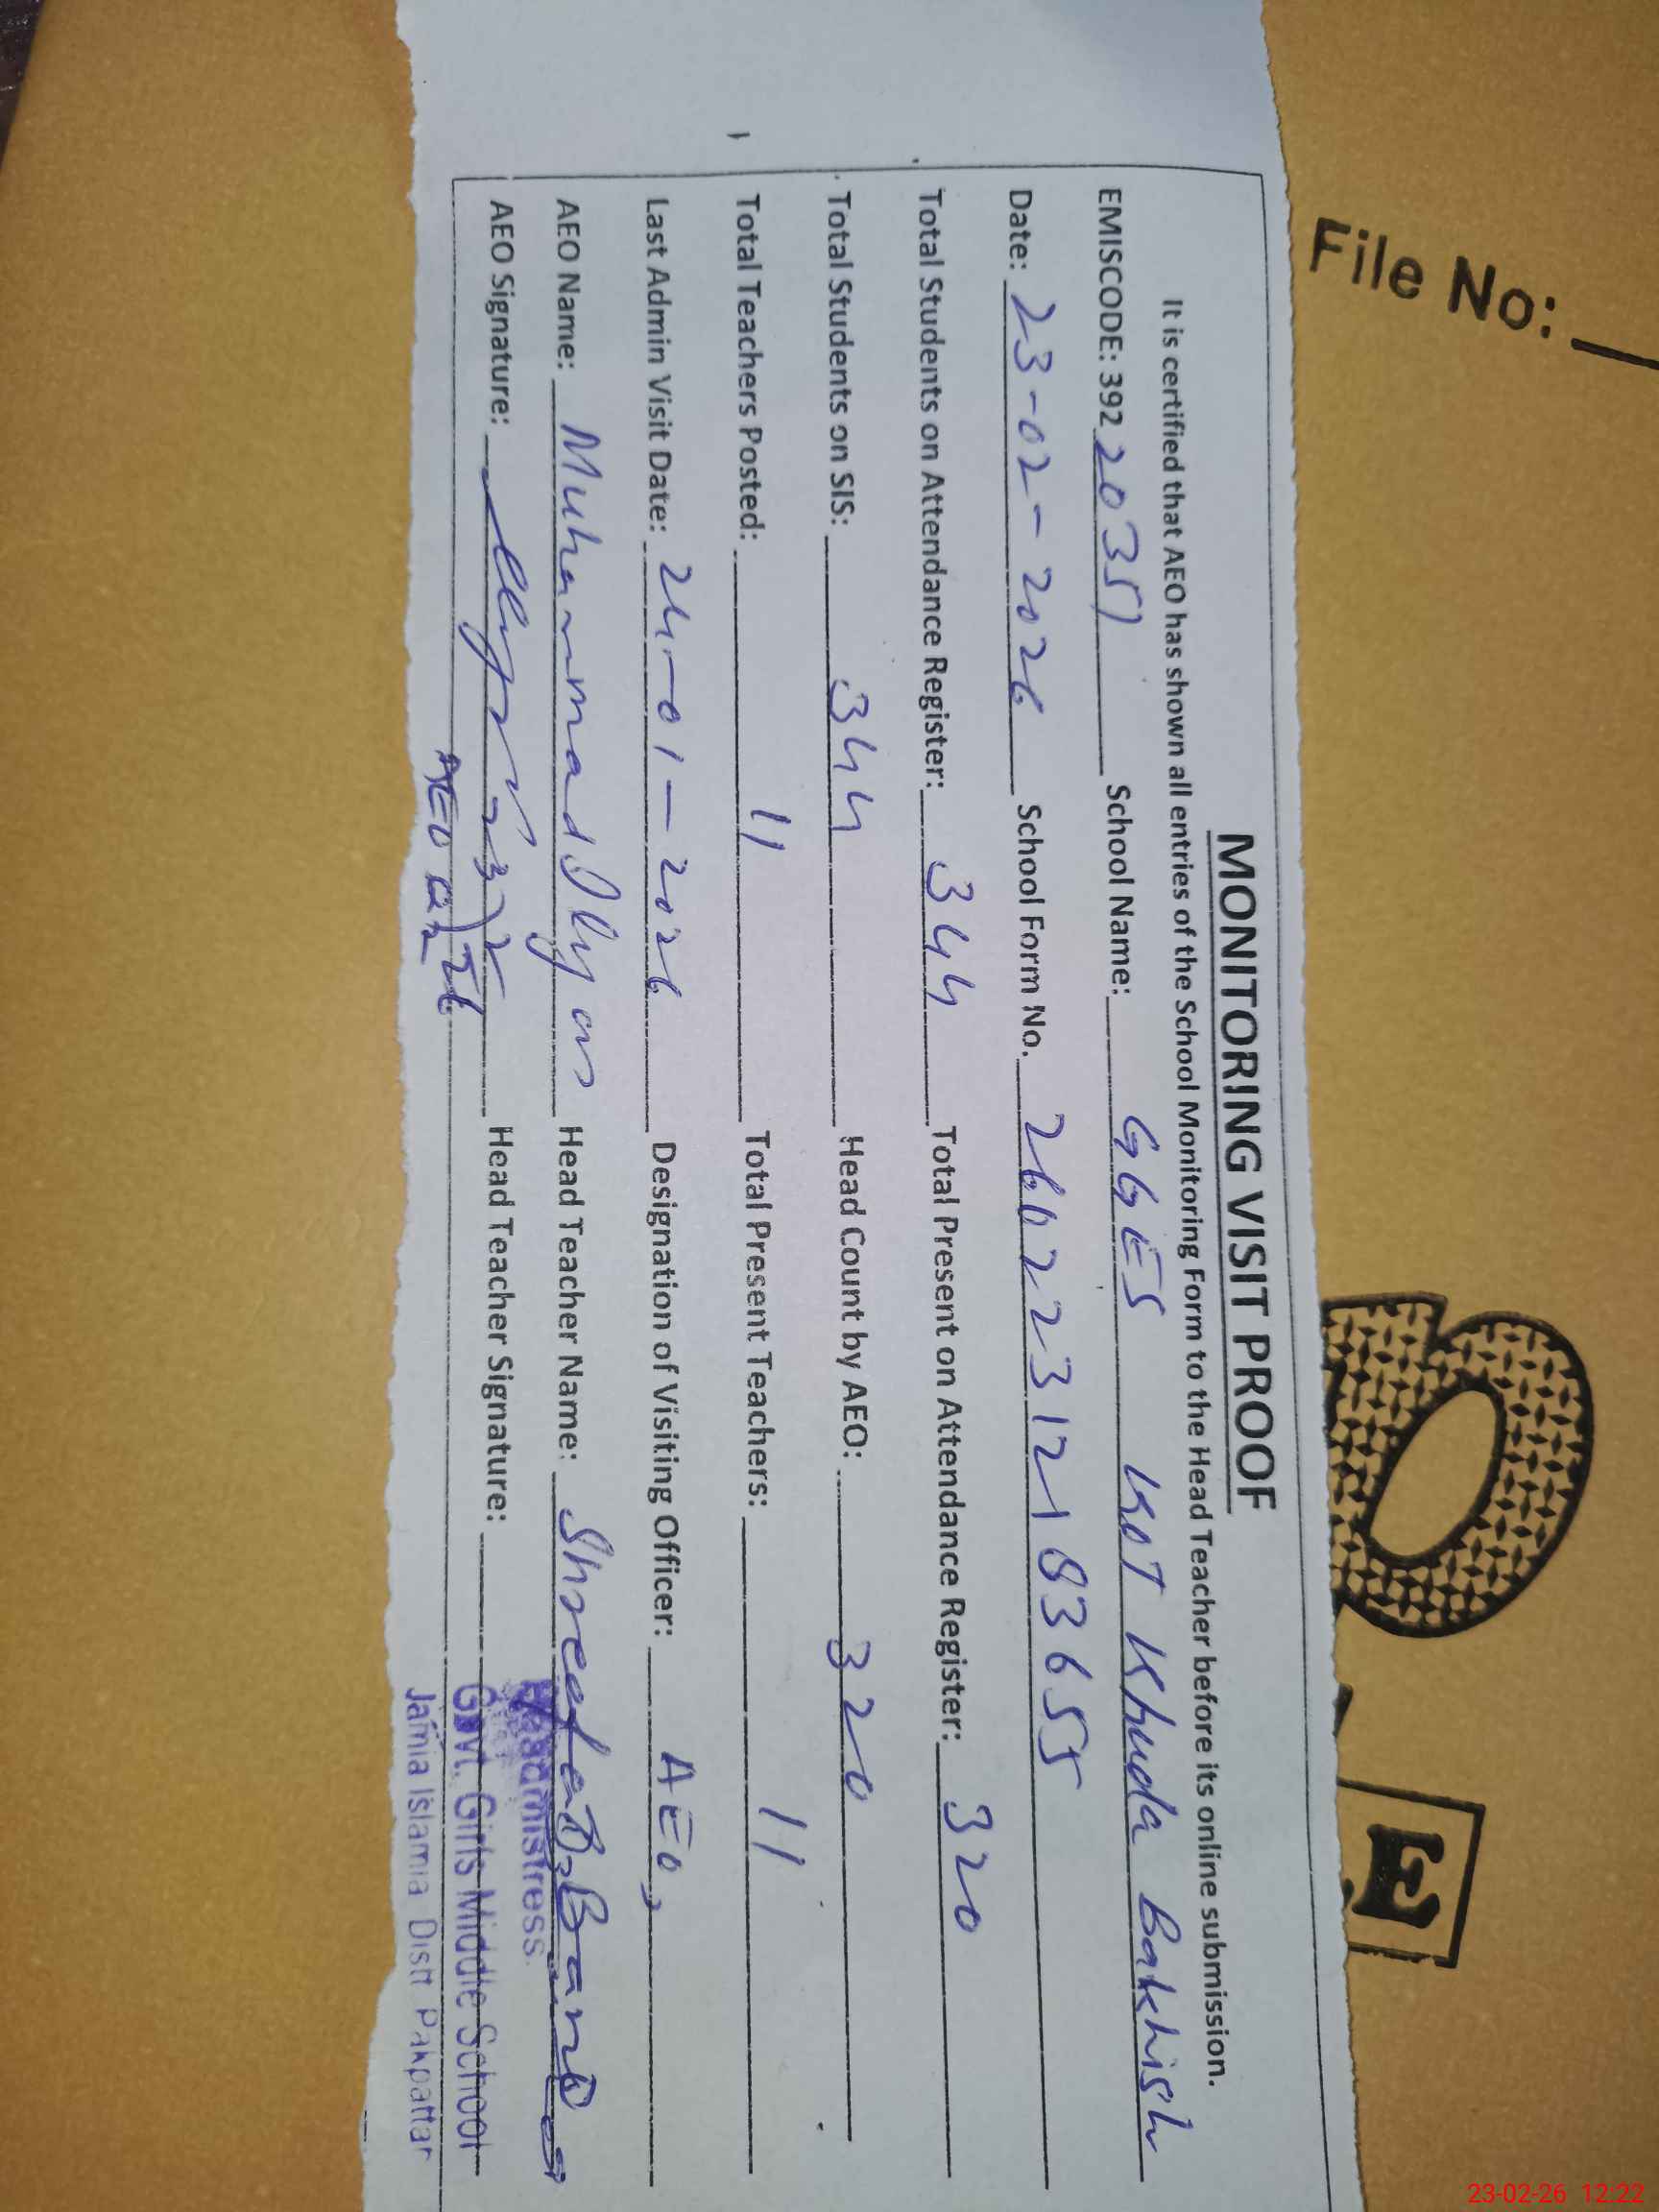 File No:
E
MONITORING VISIT PROOF
It is certified that AEO has shown all entries of the School Monitoring Form to the Head Teacher before its online submission.
EMISCODE: 39220351 School Name: GGES KOT Khuda Bakhish
Date: 23-02-2026 School Form No. 26022312183655
Total Students on Attendance Register: 344 Total Present on Attendance Register: 320
Total Students on SIS: 344 Head Count by AEO: 320
Total Teachers Posted: 11 Total Present Teachers: 11
Last Admin Visit Date: 24-01-2026 Designation of Visiting Officer: AEO,
AEO Name: Muhammad Ilyas Head Teacher Name: Bano
Headmistress
AEO Signature: Head Teacher Signature:
Govt. Girls Middle School
AEO
Jamia Islamia Distt Pakpattan
23-02-26 12:22